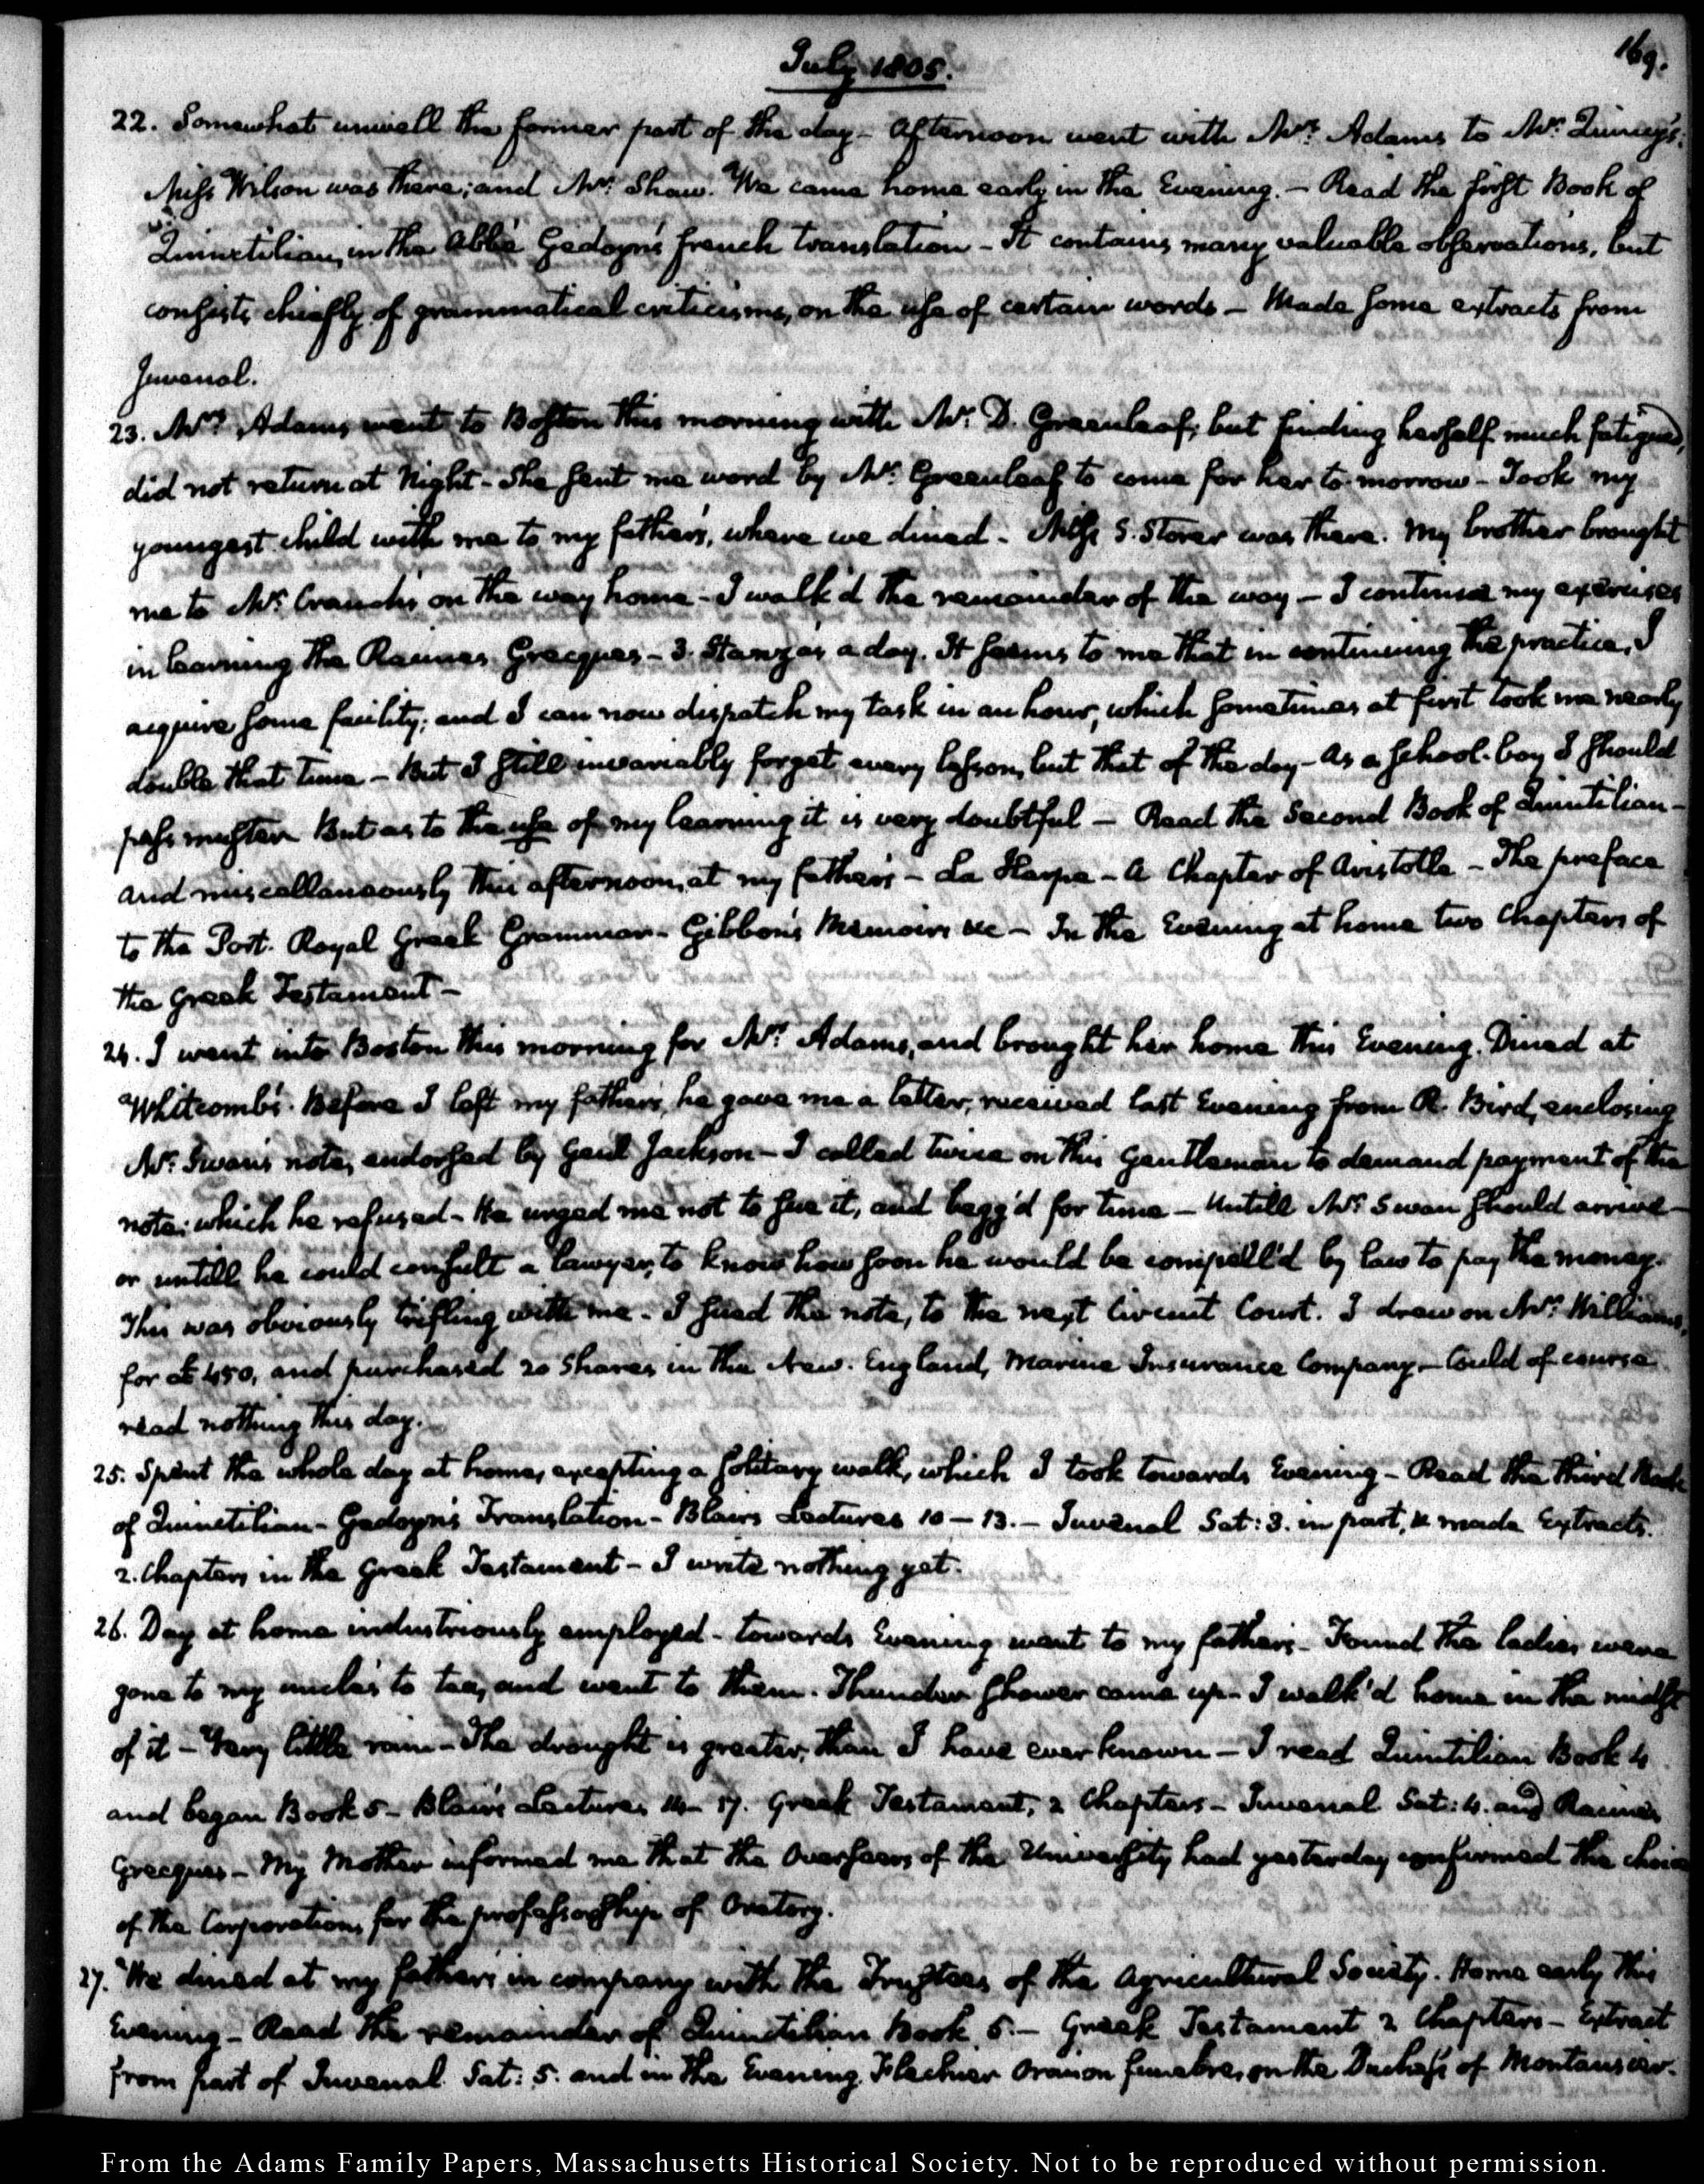 July 1805.
169.
22. Somewhat unwell the former part of the day – Afternoon went with Mrs. Adams to Mr. Quincy's.
Miss Wilson was there; and Mr. Shaw. We came home early in the Evening. – Read the first Book of
Quinctilian, in the Abbé Gedoyn's french translation – It contains many valuable observations, but
consists chiefly of grammatical criticisms, on the use of certain words – Made some extracts from
Juvenal.
23. Mrs. Adams went to Boston this morning with Mr. D. Greenleaf; but finding herself much fatigued,
did not return at Night – She sent me word by Mr. Greenleaf to come for her to-morrow – Took my
youngest child with me to my father's, where we dined – Miss S. Storer was there. My brother brought
me to Mr. Cranch's on the way home – I walk'd the remainder of the way – I continue my exercises
in learning the Racines Grecques – 3. Stanza's a day. It seems to me that in continuing the practice, I
acquire some facility; and I can now dispatch my task in an hour, which sometimes at first took me nearly
double that time – But I still invariably forget every lesson, but that of the day – As a school-boy I should
pass muster But as to the use of my learning it is very doubtful – Read the Second Book of Quintilian –
and miscellaneously this afternoon, at my father's – La Harpe – A Chapter of Aristotle – The preface
to the Port-Royal Greek Grammar – Gibbon's Memoirs &c – In the Evening at home two Chapters of
the Greek Testament –
24. I went into Boston this morning for Mrs. Adams, and brought her home this Evening. Dined at
Whitcomb's. Before I left my father's, he gave me a letter, received last Evening from R. Bird, enclosing
Mr. Swan's note, endorsed by Genl Jackson – I called twice on this Gentleman to demand payment of the
note; which he refused – He urged me not to sue it, and begg'd for time – Untill Mr. Swan should arrive –
or untill he could consult a lawyer, to know how soon he would be compell'd by law to pay the money.
This was obviously trifling with me – I sued the note, to the next Circuit Court. I drew on Mr. Williams,
for £450, and purchased 20 Shares in the New-England, Marine Insurance Company – Could of course
read nothing this day.
25. Spent the whole day at home, excepting a solitary walk, which I took towards Evening – Read the third Book
of Quinctilian – Gedoyn's Translation – Blairs Lectures 10 – 13. – Juvenal Sat: 3. in part, & made Extracts.
2. Chapters in the Greek Testament – I write nothing yet.
26. Day at home industriously employed – towards Evening went to my father's – Found the ladies were
gone to my uncle's to tea, and went to them. Thunder shower came up – I walk'd home in the midst
of it – Very little rain – The drought is greater, than I have ever known – I read Quintilian Book 4
and began Book 5 – Blair's Lectures 14 – 17. Greek Testament, 2 Chapters – Juvenal Sat: 4. and Racines
Grecques – My Mother informed me that the Overseers of the University had yesterday confirmed the choice
of the Corporation, for the professorship of Oratory.
27. We dined at my father's in company with the Trustees of the Agricultural Society. Home early this
Evening – Read the remainder of Quinctilian Book 5. – Greek Testament 2 Chapters – Extract
from part of Juvenal Sat: 5. and in the Evening Flechier Oraison funebre, on the Duchess of Montausier.
From the Adams Family Papers, Massachusetts Historical Society. Not to be reproduced without permission.